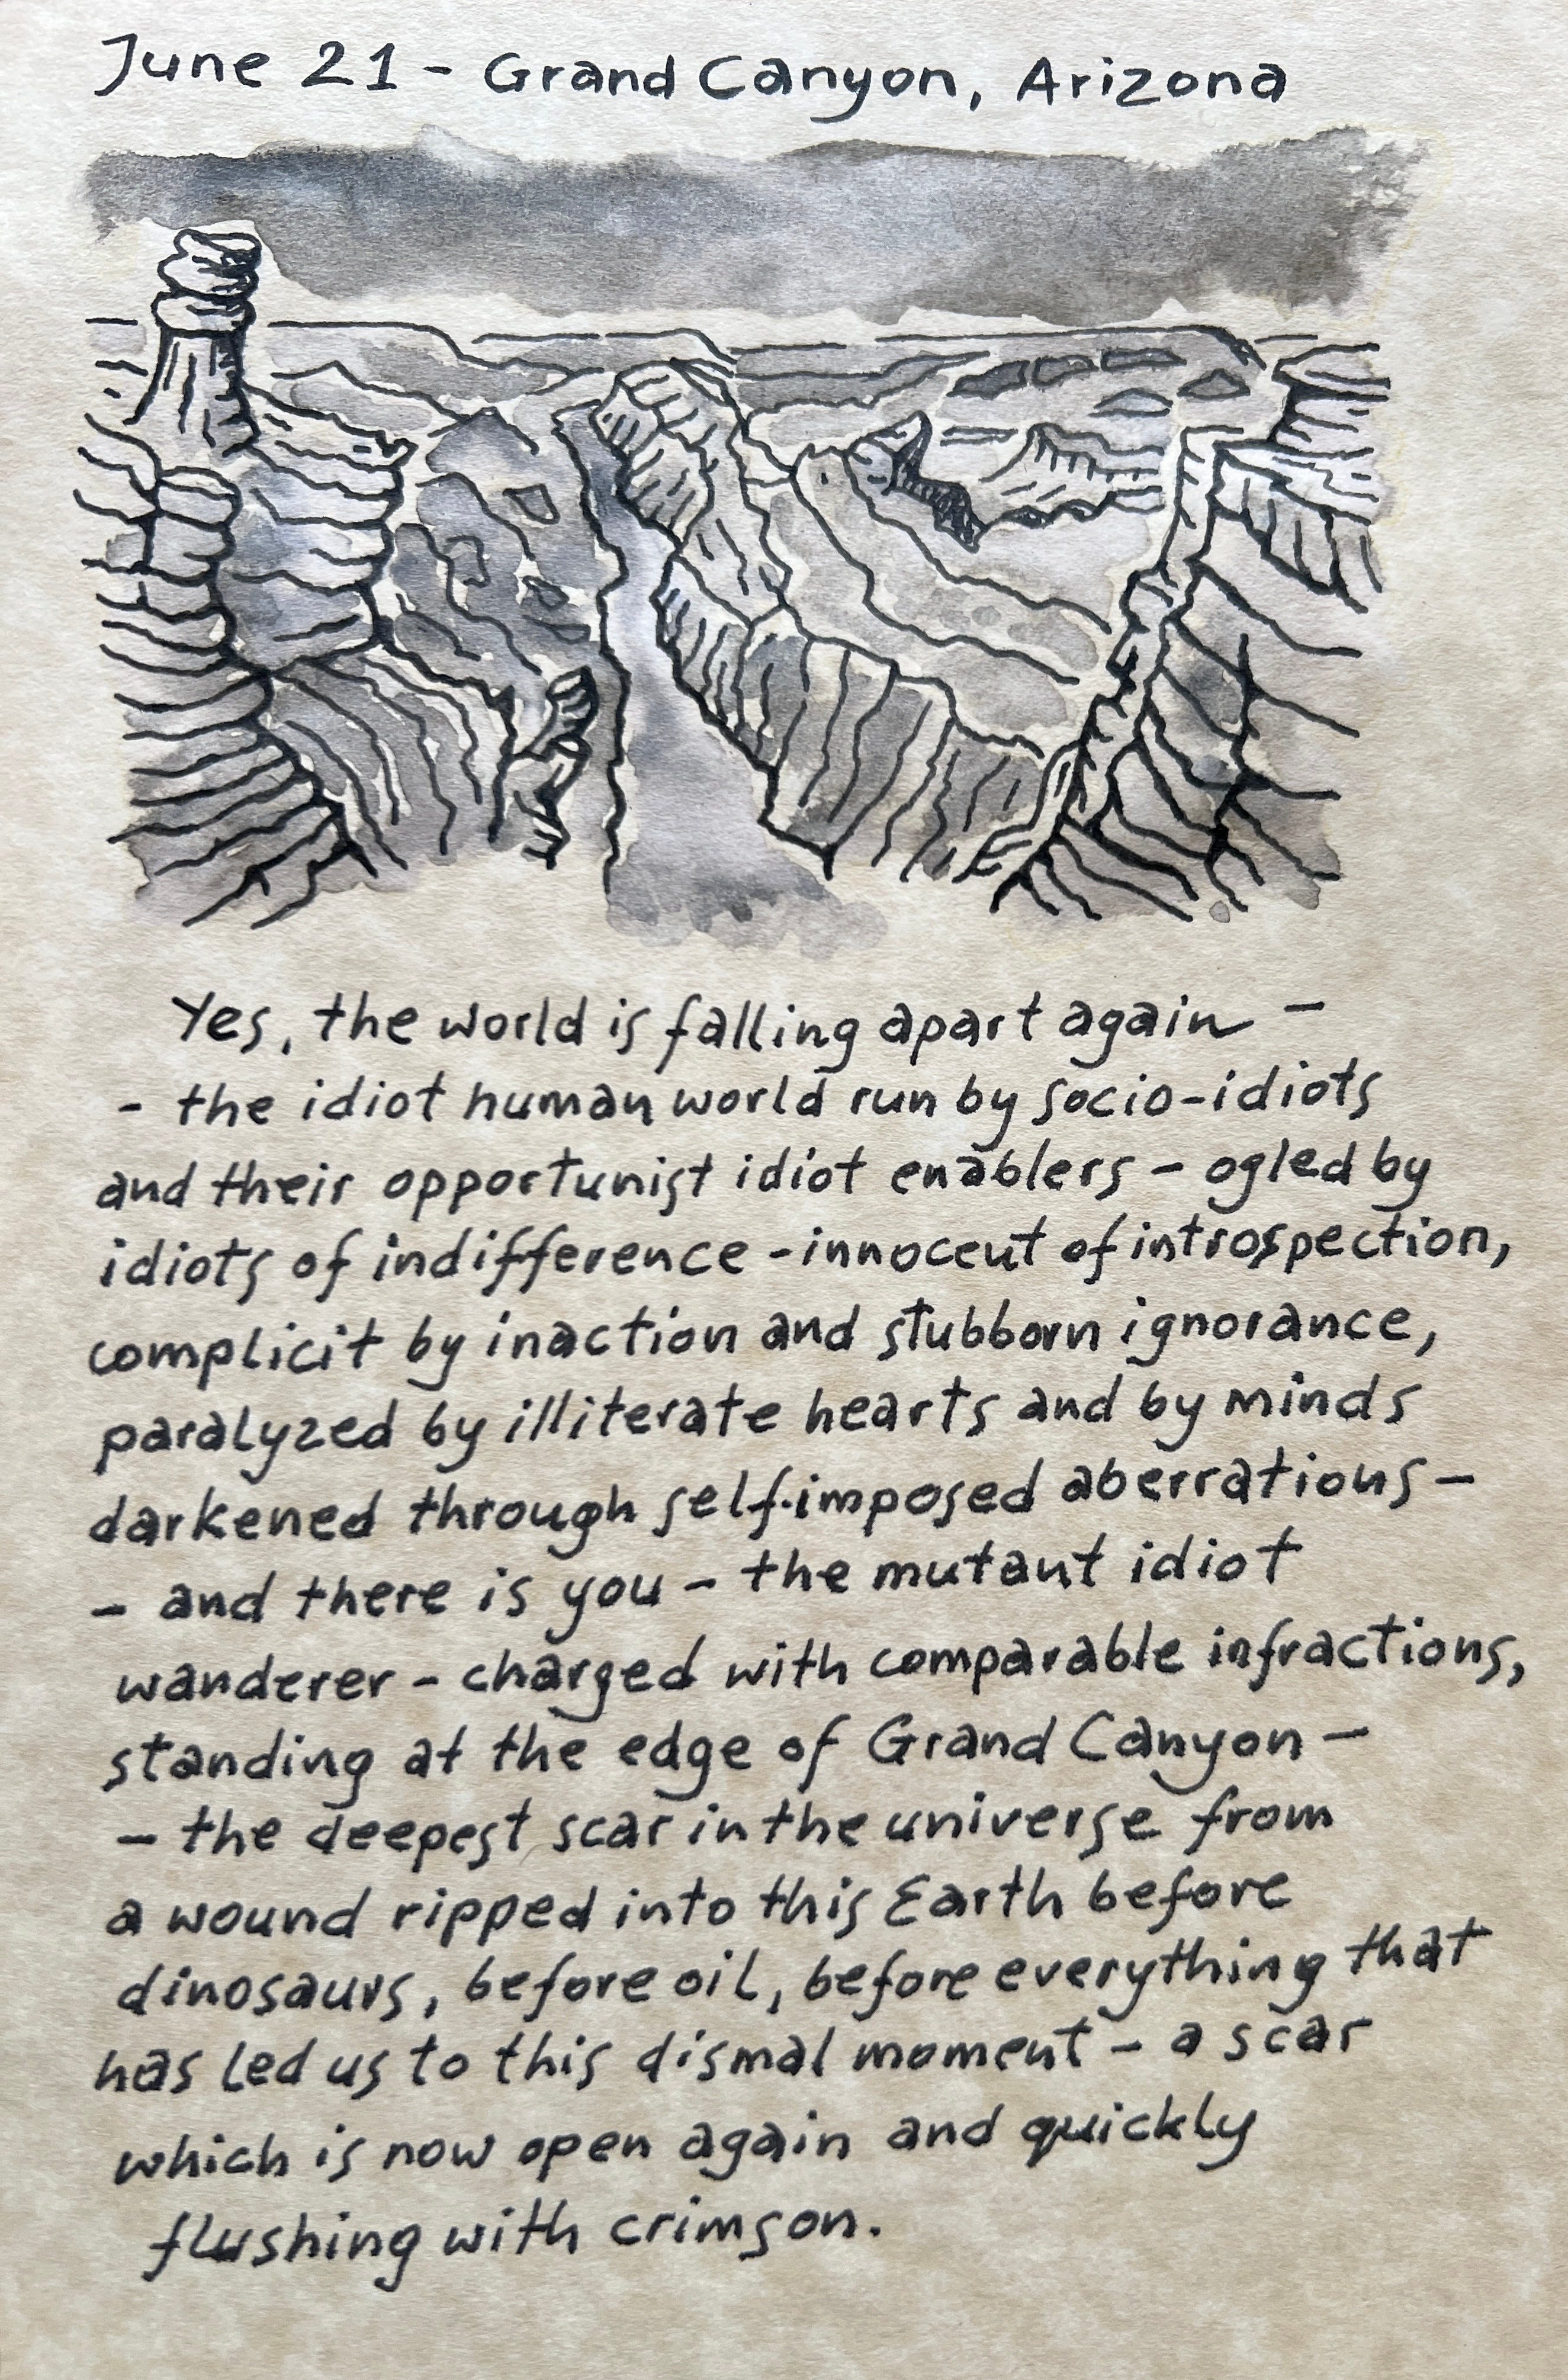 June 21 - Grand Canyon, Arizona
Yes, the world is falling apart again -
- the idiot human world run by socio-idiots
and their opportunist idiot enablers - ogled by
idiots of indifference - innocent of introspection,
complicit by inaction and stubborn ignorance,
paralyzed by illiterate hearts and by minds
darkened through self-imposed aberrations -
- and there is you - the mutant idiot
wanderer - charged with comparable infractions,
standing at the edge of Grand Canyon -
- the deepest scar in the universe from
a wound ripped into this Earth before
dinosaurs, before oil, before everything that
has led us to this dismal moment - a scar
which is now open again and quickly
flushing with crimson.